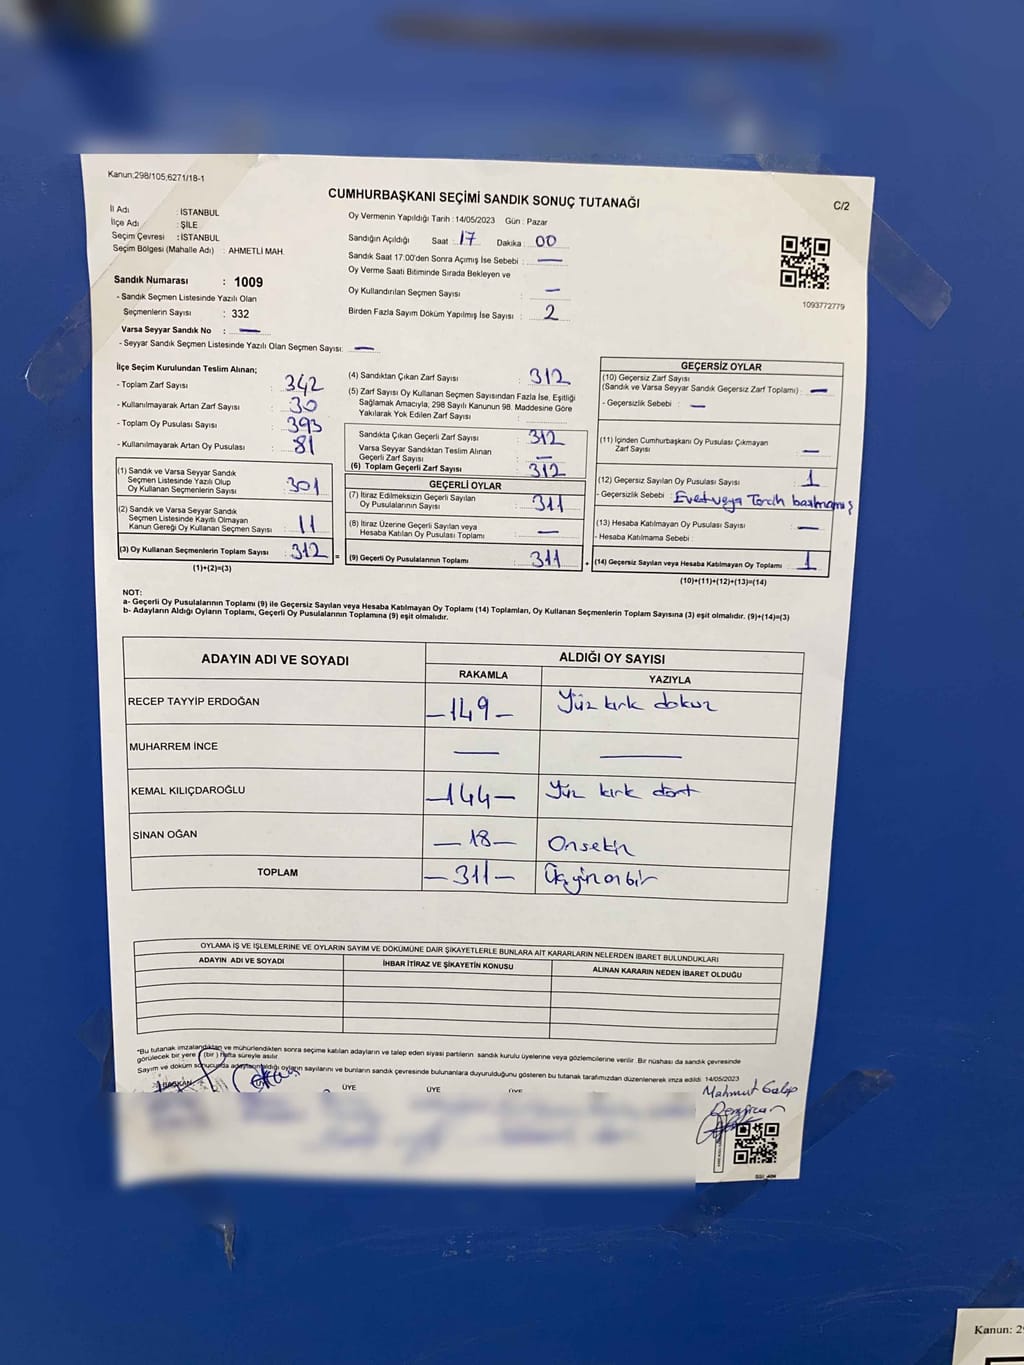 Kanun:298/105,6271/18-1
CUMHURBAŞKANI SEÇİMİ SANDIK SONUÇ TUTANAĞI
C/2
İl Adı : İSTANBUL
İlçe Adı : ŞİLE
Seçim Çevresi : İSTANBUL
Seçim Bölgesi (Mahalle Adı) : AHMETLİ MAH.
Sandık Numarası : 1009
- Sandık Seçmen Listesinde Yazılı Olan
Seçmenlerin Sayısı : 332
Varsa Seyyar Sandık No : —
- Seyyar Sandık Seçmen Listesinde Yazılı Olan Seçmen Sayısı: —
Oy Vermenin Yapıldığı Tarih : 14/05/2023 Gün : Pazar
Sandığın Açıldığı Saat : 17 Dakika : 00
Sandık Saat 17:00'den Sonra Açımış İse Sebebi : —
Oy Verme Saati Bitiminde Sırada Bekleyen ve
Oy Kullandırılan Seçmen Sayısı : —
Birden Fazla Sayım Döküm Yapılmış İse Sayısı : 2
1093772779
İlçe Seçim Kurulundan Teslim Alınan;
- Toplam Zarf Sayısı : 342
- Kullanılmayarak Artan Zarf Sayısı : 30
- Toplam Oy Pusulası Sayısı : 393
- Kullanılmayarak Artan Oy Pusulası : 81
(1) Sandık ve Varsa Seyyar Sandık
Seçmen Listesinde Yazılı Olup
Oy Kullanan Seçmenlerin Sayısı : 301
(2) Sandık ve Varsa Seyyar Sandık
Seçmen Listesinde Kayıtlı Olmayan
Kanun Gereği Oy Kullanan Seçmen Sayısı : 11
(3) Oy Kullanan Seçmenlerin Toplam Sayısı : 312 =
(1)+(2)=(3)
(4) Sandıktan Çıkan Zarf Sayısı : 312
(5) Zarf Sayısı Oy Kullanan Seçmen Sayısından Fazla İse, Eşitliği
Sağlamak Amacıyla, 298 Sayılı Kanunun 98. Maddesine Göre
Yakılarak Yok Edilen Zarf Sayısı :
Sandıkta Çıkan Geçerli Zarf Sayısı : 312
Varsa Seyyar Sandıktan Teslim Alınan
Geçerli Zarf Sayısı : —
(6) Toplam Geçerli Zarf Sayısı : 312
GEÇERLİ OYLAR
(7) İtiraz Edilmeksizin Geçerli Sayılan
Oy Pusulalarının Sayısı : 311
(8) İtiraz Üzerine Geçerli Sayılan veya
Hesaba Katılan Oy Pusulası Toplamı : —
(9) Geçerli Oy Pusulalarının Toplamı : 311 +
GEÇERSİZ OYLAR
(10) Geçersiz Zarf Sayısı
(Sandık ve Varsa Seyyar Sandık Geçersiz Zarf Toplamı) : —
- Geçersizlik Sebebi : —
(11) İçinden Cumhurbaşkanı Oy Pusulası Çıkmayan
Zarf Sayısı : —
(12) Geçersiz Sayılan Oy Pusulası Sayısı : 1
- Geçersizlik Sebebi : Evet veya Tercih basılmamış
(13) Hesaba Katılmayan Oy Pusulası Sayısı : —
- Hesaba Katılmama Sebebi :
(14) Geçersiz Sayılan veya Hesaba Katılmayan Oy Toplamı : 1
(10)+(11)+(12)+(13)=(14)
NOT:
a- Geçerli Oy Pusulalarının Toplamı (9) ile Geçersiz Sayılan veya Hesaba Katılmayan Oy Toplamı (14) Toplamları, Oy Kullanan Seçmenlerin Toplam Sayısına (3) eşit olmalıdır. (9)+(14)=(3)
b- Adayların Aldığı Oyların Toplamı, Geçerli Oy Pusulalarının Toplamına (9) eşit olmalıdır.
ADAYIN ADI VE SOYADI ALDIĞI OY SAYISI
RAKAMLA YAZIYLA
RECEP TAYYİP ERDOĞAN —149— Yüz kırk dokuz
MUHARREM İNCE — —
KEMAL KILIÇDAROĞLU —144— Yüz kırk dört
SİNAN OĞAN —18— Onsekiz
TOPLAM —311— Üçyüz on bir
OYLAMA İŞ VE İŞLEMLERİNE VE OYLARIN SAYIM VE DÖKÜMÜNE DAİR ŞİKAYETLERLE BUNLARA AİT KARARLARIN NELERDEN İBARET BULUNDUKLARI
ADAYIN ADI VE SOYADI İHBAR İTİRAZ VE ŞİKAYETİN KONUSU ALINAN KARARIN NEDEN İBARET OLDUĞU
*Bu tutanak imzalandıktan ve mühürlendikten sonra seçime katılan adayların ve talep eden siyasi partilerin sandık kurulu üyelerine veya gözlemcilerine verilir. Bir nüshası da sandık çevresinde
görülecek bir yere 1 (bir) hafta süreyle asılır.
Sayım ve döküm sonucunda adayların aldığı oyların sayılarını ve bunların sandık çevresinde bulunanlara duyurulduğunu gösteren bu tutanak tarafımızdan düzenlenerek imza edildi. 14/05/2023
BAŞKAN ÜYE ÜYE ÜYE
Mahmut Galip
Kanun: 29